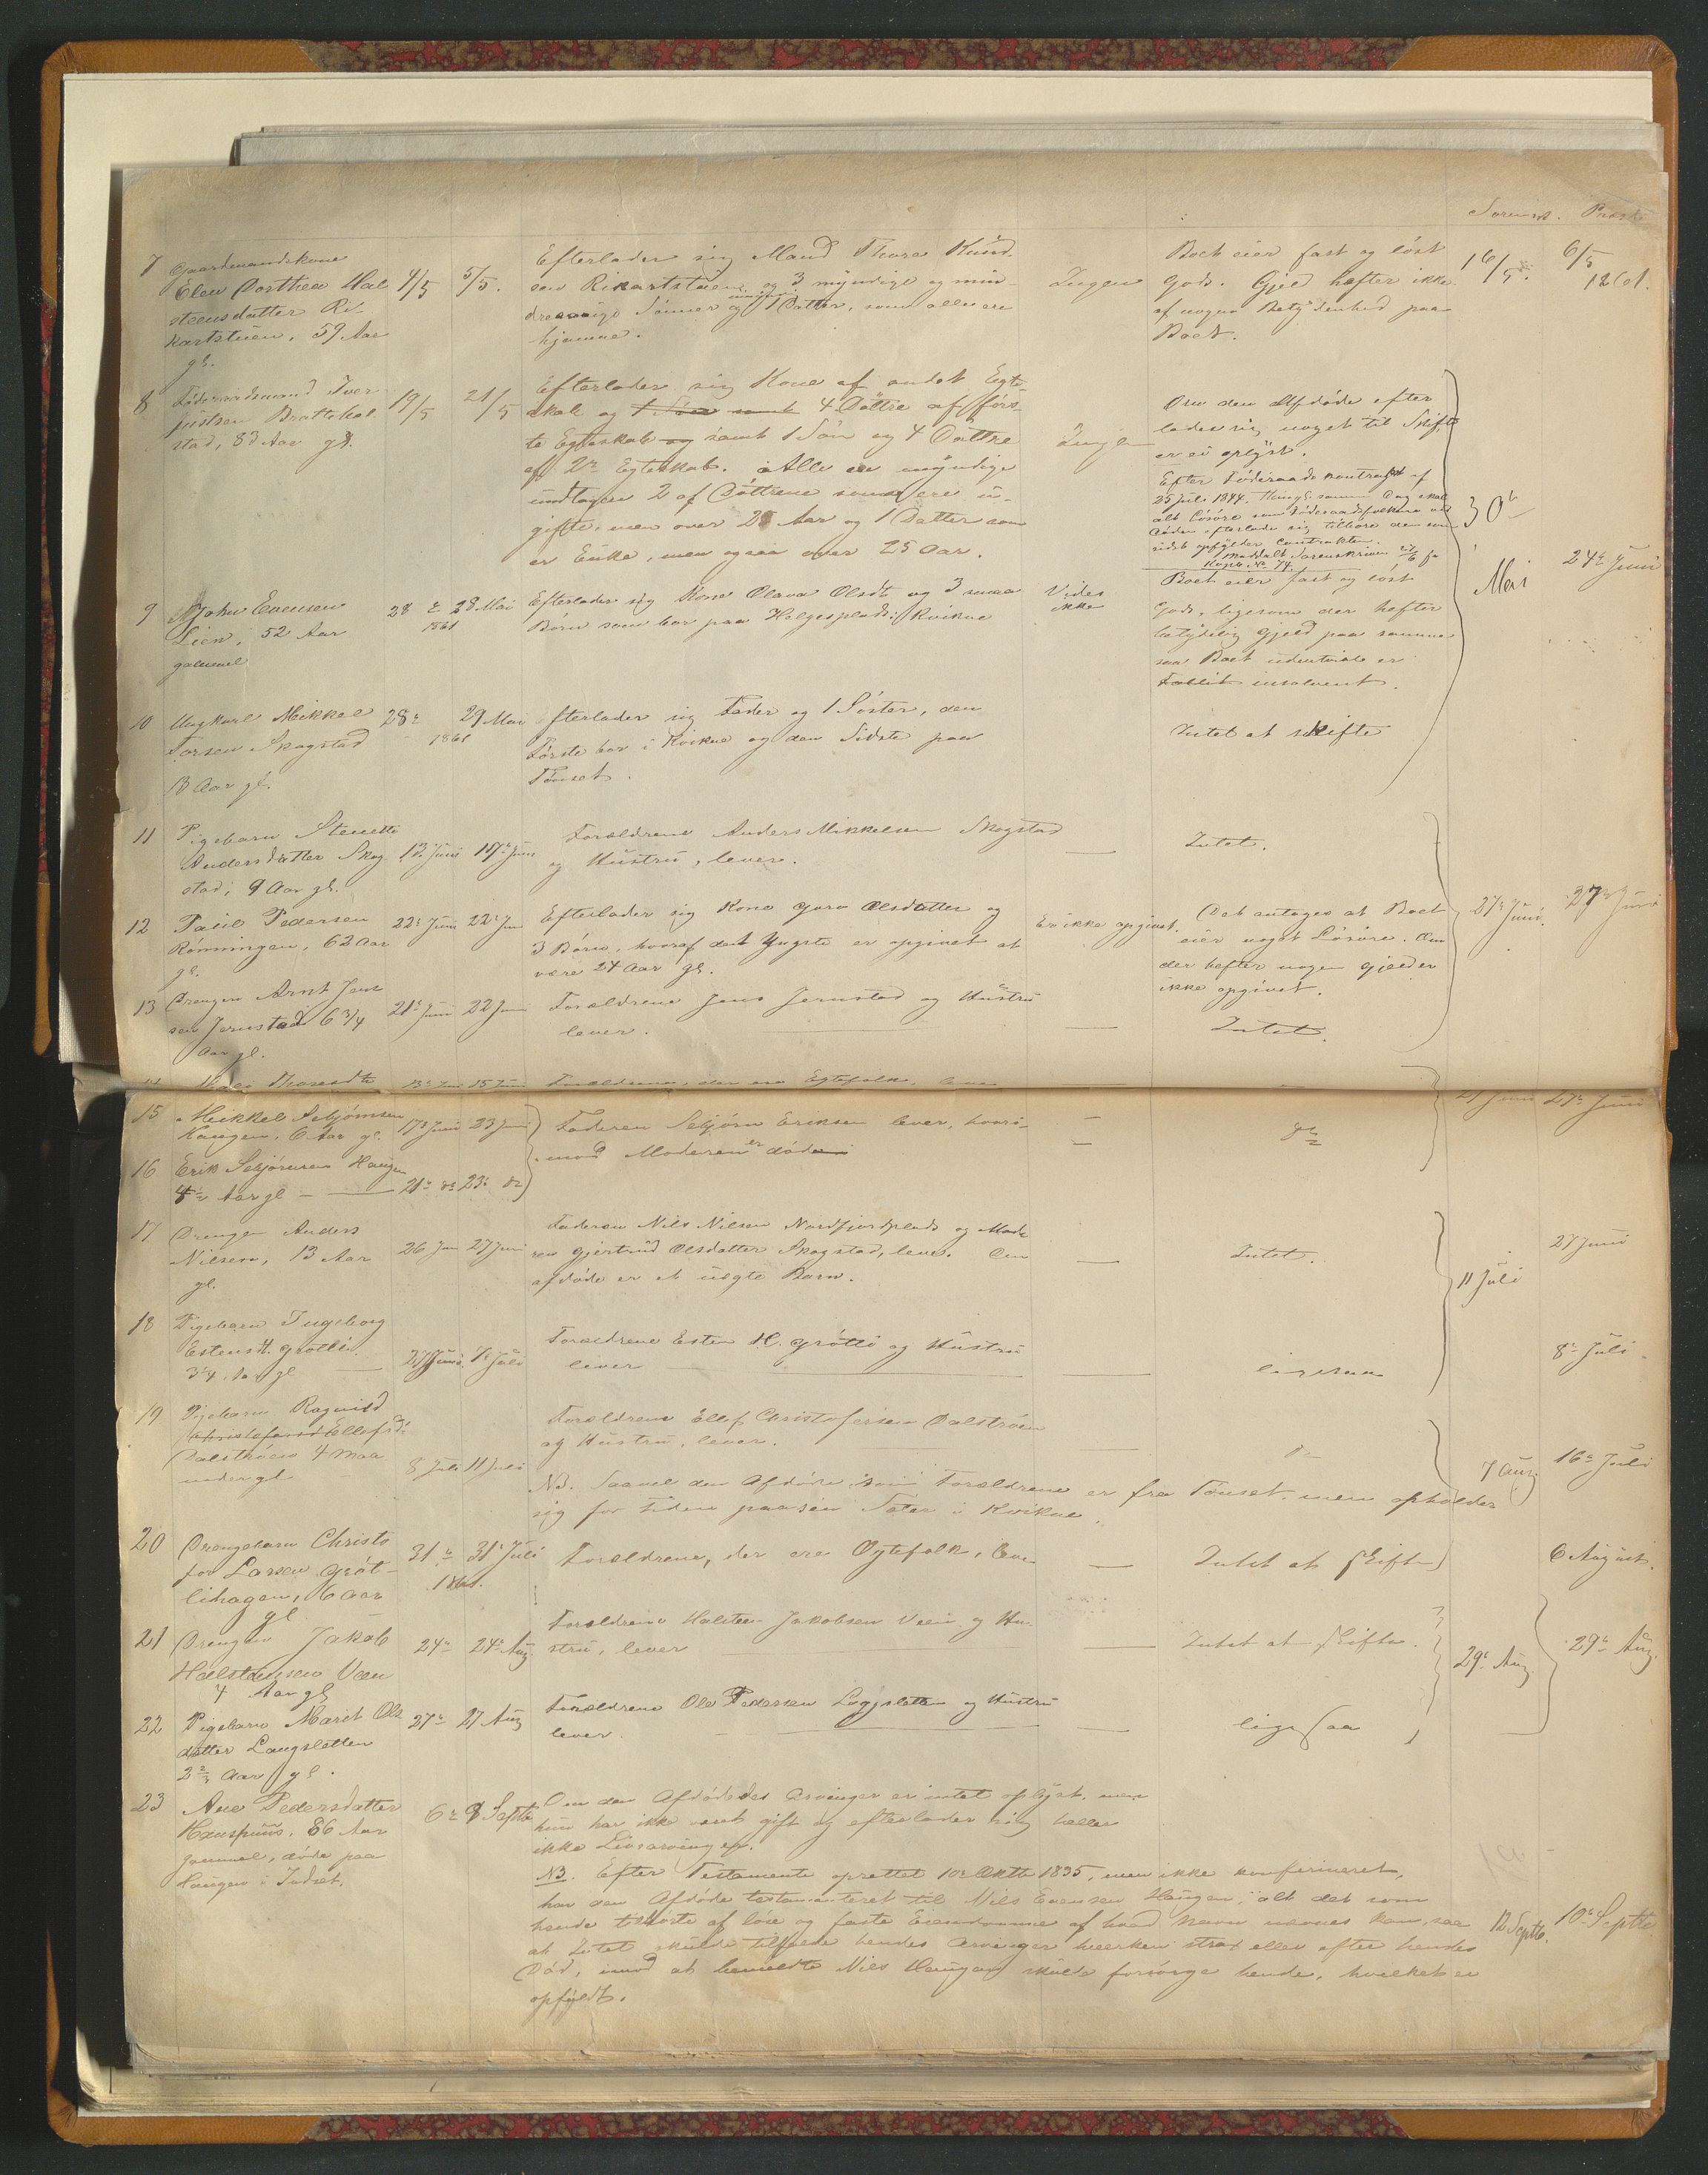 Sorensk. Præst
7 Gaardmandskone
Elen Dorthea Hal
steensdatter Ri-
kartstuen, 59 Aar
gl.
4/5 5/5.
Efterlader sig Mand Thore Knud
sen Rikartstuen og 3 myndige og min
dreaarige Sønner og 1 Datter, som alle ere
hjemme.
Ingen
Boet eier fast og løst
Gods. Gjeld hefter ikke
af nogen Betydenhed paa
Boet.
16/5. 6/5
1861.
8 Føderaadsmand Iver
Brattekal
stad, 83 Aar gl.
19/5 21/5
Efterlader sig Kone af andet Egte-
skab og 1 Søn samt 4 Døttre af førs-
te Egteskab og samt 1 Søn og 4 Døttre
af 2n Egteskab. Alle ere myndige
undtagen 2 af Døttrene som ere u-
gifte, men over 25 Aar og 1 Datter som
er Enke, men ogsaa over 25 Aar.
Ingen
Om den Afdøde efter
lader sig noget til Skifte
er ei oplyst.
Efter Føderaads kontrakt af
25 Juli 1844, Thingl. samme Dag skal
alt Løsøre som Føderaadsfolkene ved
Døden efterlade sig tilhøre den som
sidst opfylder Contrakten.
30
Mai
24de Juni
9 John Evensen
Lien, 52 Aar
gammel
28 1861 28 Mai
Efterlader sig Kone Olava Olsdt og 3 smaa
Børn som bor paa Helgesplads i Kvikne
Vides
ikke
Boet eier fast og løst
Gods, ligesom der hefter
betydelig Gjeld paa samme
saa Boet udentvivl er
Fallit insolvent.
10 Ungkarl Mikkel
Torsen Skogstad
18 Aar gl.
28 1861 29 Mai
fterlader sig Fader og 1 Søster, den
Første bor i Kvikne og den Sidste paa
Tønset.
Intet at skifte
11 Pigebarn Stenette
Andersdatter Skog-
stad, 9 Aar gl.
13 Juni 17 Juni
Forældrene Anders Mikkelsen Skogstad
og Hustru, lever.
Intet.
12 Paul Pedersen
Rønningen, 62 Aar
gl.
22 Juni 22 Jun
Efterlader sig Kone Guro Olsdatter og
3 Børn, hvoraf det Yngste er opgivet at
være 24 Aar gl.
Er ikke opgivet.
Det antages at Boet
eier noget Løsøre. Om
der hefter nogen Gjeld er
ikke opgivet.
27 Juni. 27 Juni
13 Drengen Arnt Jens
sen Jernstad 6 3/4
Aar gl.
21 Juni 22 Jun
Forældrene Jens Jernstad og Hustru
lever.
Intet.
13 Juni 15 Juni Forældrene, der ere Egtefolk, leve
15 Mikkel Sebjørnsen
Haugen, 6 Aar gl.
17 Juni 23 Juni
Faderen Sebjørn Eriksen lever, hvori-
mod Moderen er døde
27 Juni
16 Erik Sebjørnsen Haugen
Aar gl
21 do 23 do
17 Drengen Anders
Nilsen, 13 Aar
gl.
26 Jun 27 Juni
Faderen Nils Nilsen Nordfjordplads og Mode
ren Gjertrud Olsdatter Skogstad, lever. Den
afdøde er et uegte Barn.
Intet.
11 Juli
27 Juni
18 Pigebarn Ingeborg
Estensd. Grøtli
3/4 Aar gl
27 Juni 1 Juli
Forældrene Esten H. Grøtli og Hustru
lever
ligesaa
8 Juli
19 Pigebarn Ragnild
Christofersd Ellefsd.
Dalstrøen 4 Maa
neder gl
8 Juli 11 Juli
Forældrene Ellef Christofersen Dalstrøen
og Hustru, lever.
NB. Saavel den Afdøde som Forældrene er fra Tønset, men opholder
sig for tiden paa sin Sæter i Kvikne.
7 Aug.
16 Juli
20 Drengebarn Christo
fer Larsen Grøt-
lihagen, 6 Aar
gl
31 1861. 31 Juli
Forældrene, der ere Egtefolk, leve
Intet at skifte
6 August.
21 Drengen Jakob
Halstensen Veen
4 Aar gl
24 24 Aug.
Forældrene Halsten Jakobsen Veen og Hu-
stru, lever
Intet at skifte.
29 Aug.
29 Aug.
22 Pigebarn Marit Ols
datter Langsletten
2 2/3 Aar gl.
27 27 Aug
Forældrene Ole Pedersen Langsletten og Hustru
lever.
ligesaa
23 Ane Pedersdatter
86 Aar
gammel, døde paa
Haugen i Indset.
6 8 Septbr
Om den Afdødes Arvinger er intet oplyst, men
hun har ikke været gift og efterlader sig heller
ikke Livsarvinger.
NB. Efter Testamente oprettet 10 Oktbr 1835, men ikke konfirmeret,
har den Afdøde testamenteret til Nils Evensen Haugen, alt det som
hende tilhørte af løse og faste Eiendomme af hvad Navn nævnes kan, saa
at Intet skulde tilfalde hendes Arvinger hverken strax eller efter hendes
Død, imod at bemeldte Nils Haugen skulde forsørge hende, hvilket er
opfyldt.
12 Septb. 10 Septbr